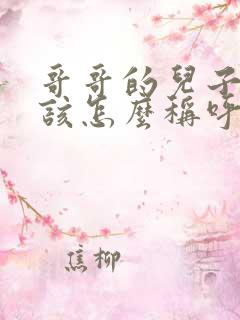 哥哥的兒子
該怎麼稱呼
焦柳